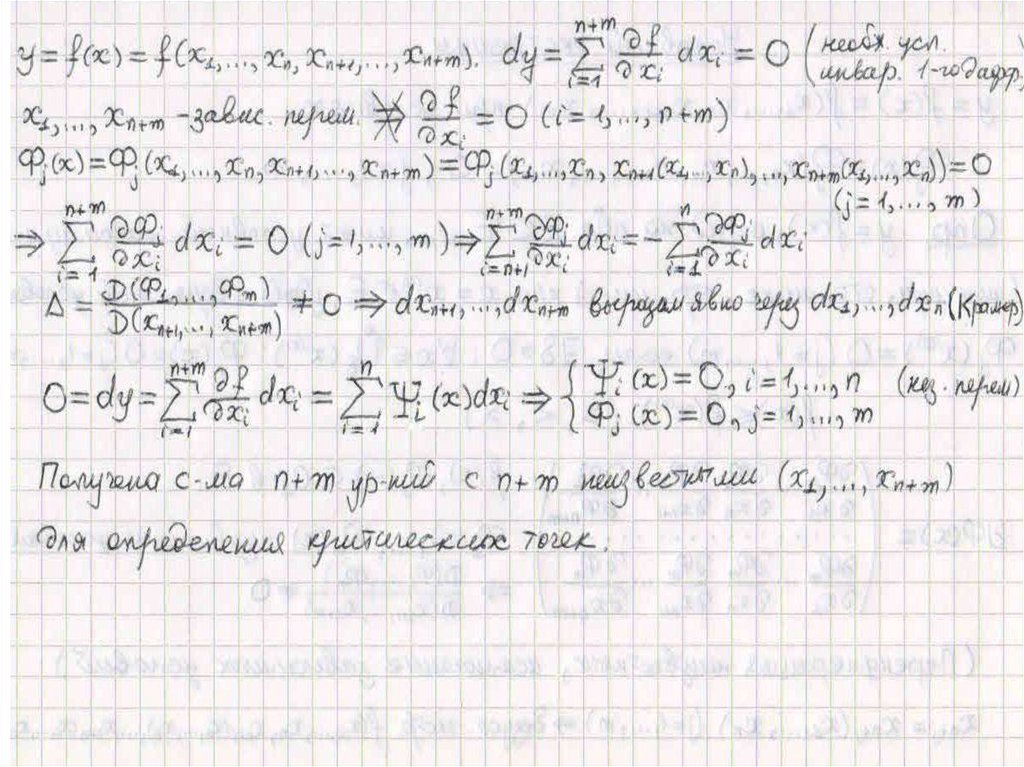 y = f(x) = f(x₁,...,xₙ,xₙ₊₁,...,xₙ₊ₘ). dy = ∑_{i=1}^{n+m} ∂f/∂xᵢ dxᵢ = 0 (необх. усл. инвар. 1-го дифф.)
x₁,...,xₙ₊ₘ - завис. перем. ⇏ ∂f/∂xᵢ = 0 (i=1,...,n+m)
Φⱼ(x) = Φⱼ(x₁,...,xₙ,xₙ₊₁,...,xₙ₊ₘ) = Φⱼ(x₁,...,xₙ,xₙ₊₁(x₁,...,xₙ),...,xₙ₊ₘ(x₁,...,xₙ)) = 0
(j=1,...,m)
⇒ ∑_{i=1}^{n+m} ∂Φⱼ/∂xᵢ dxᵢ = 0 (j=1,...,m) ⇒ ∑_{i=n+1}^{n+m} ∂Φⱼ/∂xᵢ dxᵢ = -∑_{i=1}^{n} ∂Φⱼ/∂xᵢ dxᵢ
Δ = D(Φ₁,...,Φₘ)/D(xₙ₊₁,...,xₙ₊ₘ) ≠ 0 ⇒ dxₙ₊₁,...,dxₙ₊ₘ выразим явно через dx₁,...,dxₙ (Крамер)
0 = dy = ∑_{i=1}^{n+m} ∂f/∂xᵢ dxᵢ = ∑_{i=1}^{n} Ψᵢ(x)dxᵢ ⇒ { Ψᵢ(x) = 0, i=1,...,n (нез. перем)
Φⱼ(x) = 0, j=1,...,m
Получена с-ма n+m ур-ний с n+m неизвестными (x₁,...,xₙ₊ₘ)
для определения критических точек.